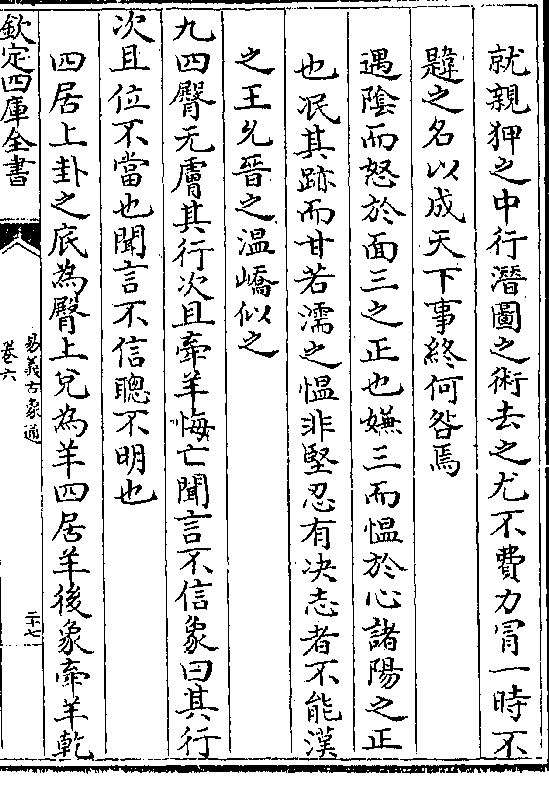 就親狎之中行潛圖之術去之尤不費力冐一時不
韙之名以成天下事終何咎焉
遇陰而怒於面三之正也嫌三而愠於心諸陽之正
也冺其跡而甘若濡之愠非堅忍有决志者不能漢
之王允晉之温嶠似之
九四臀无膚其行次且牽羊悔亡聞言不信象曰其行
次且位不當也聞言不信聰不明也
四居上卦之底為臀上兌為羊四居羊後象牽羊乾
欽定四庫全書
易義古象通
卷六
二十七